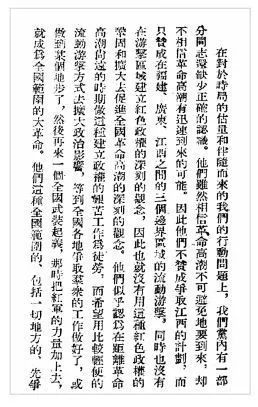 在對於時局的估量和伴隨而來的我們的行動問題上，我們黨內有一部
分同志還缺少正確的認識。他們雖然相信革命高潮不可避免地要到來，却
不相信革命高潮有迅速到來的可能。因此他們不贊成爭取江西的計劃，而
只贊成在福建、廣東、江西之間的三個邊界區域的流動游擊，同時也沒有
在游擊區域建立紅色政權的深刻的觀念，因此也就沒有用這種紅色政權的
鞏固和擴大去促進全國革命高潮的深刻的觀念。他們似乎認爲在距離革命
高潮尚遠的時期做這種建立政權的艱苦工作爲徒勞，而希望用比較輕便的
流動游擊方式去擴大政治影響，等到全國各地爭取羣衆的工作做好了，或
做到某個地步了，然後再來一個全國武裝起義，那時把紅軍的力量加上去，
就成爲全國範圍的大革命。他們這種全國範圍的、包括一切地方的、先爭